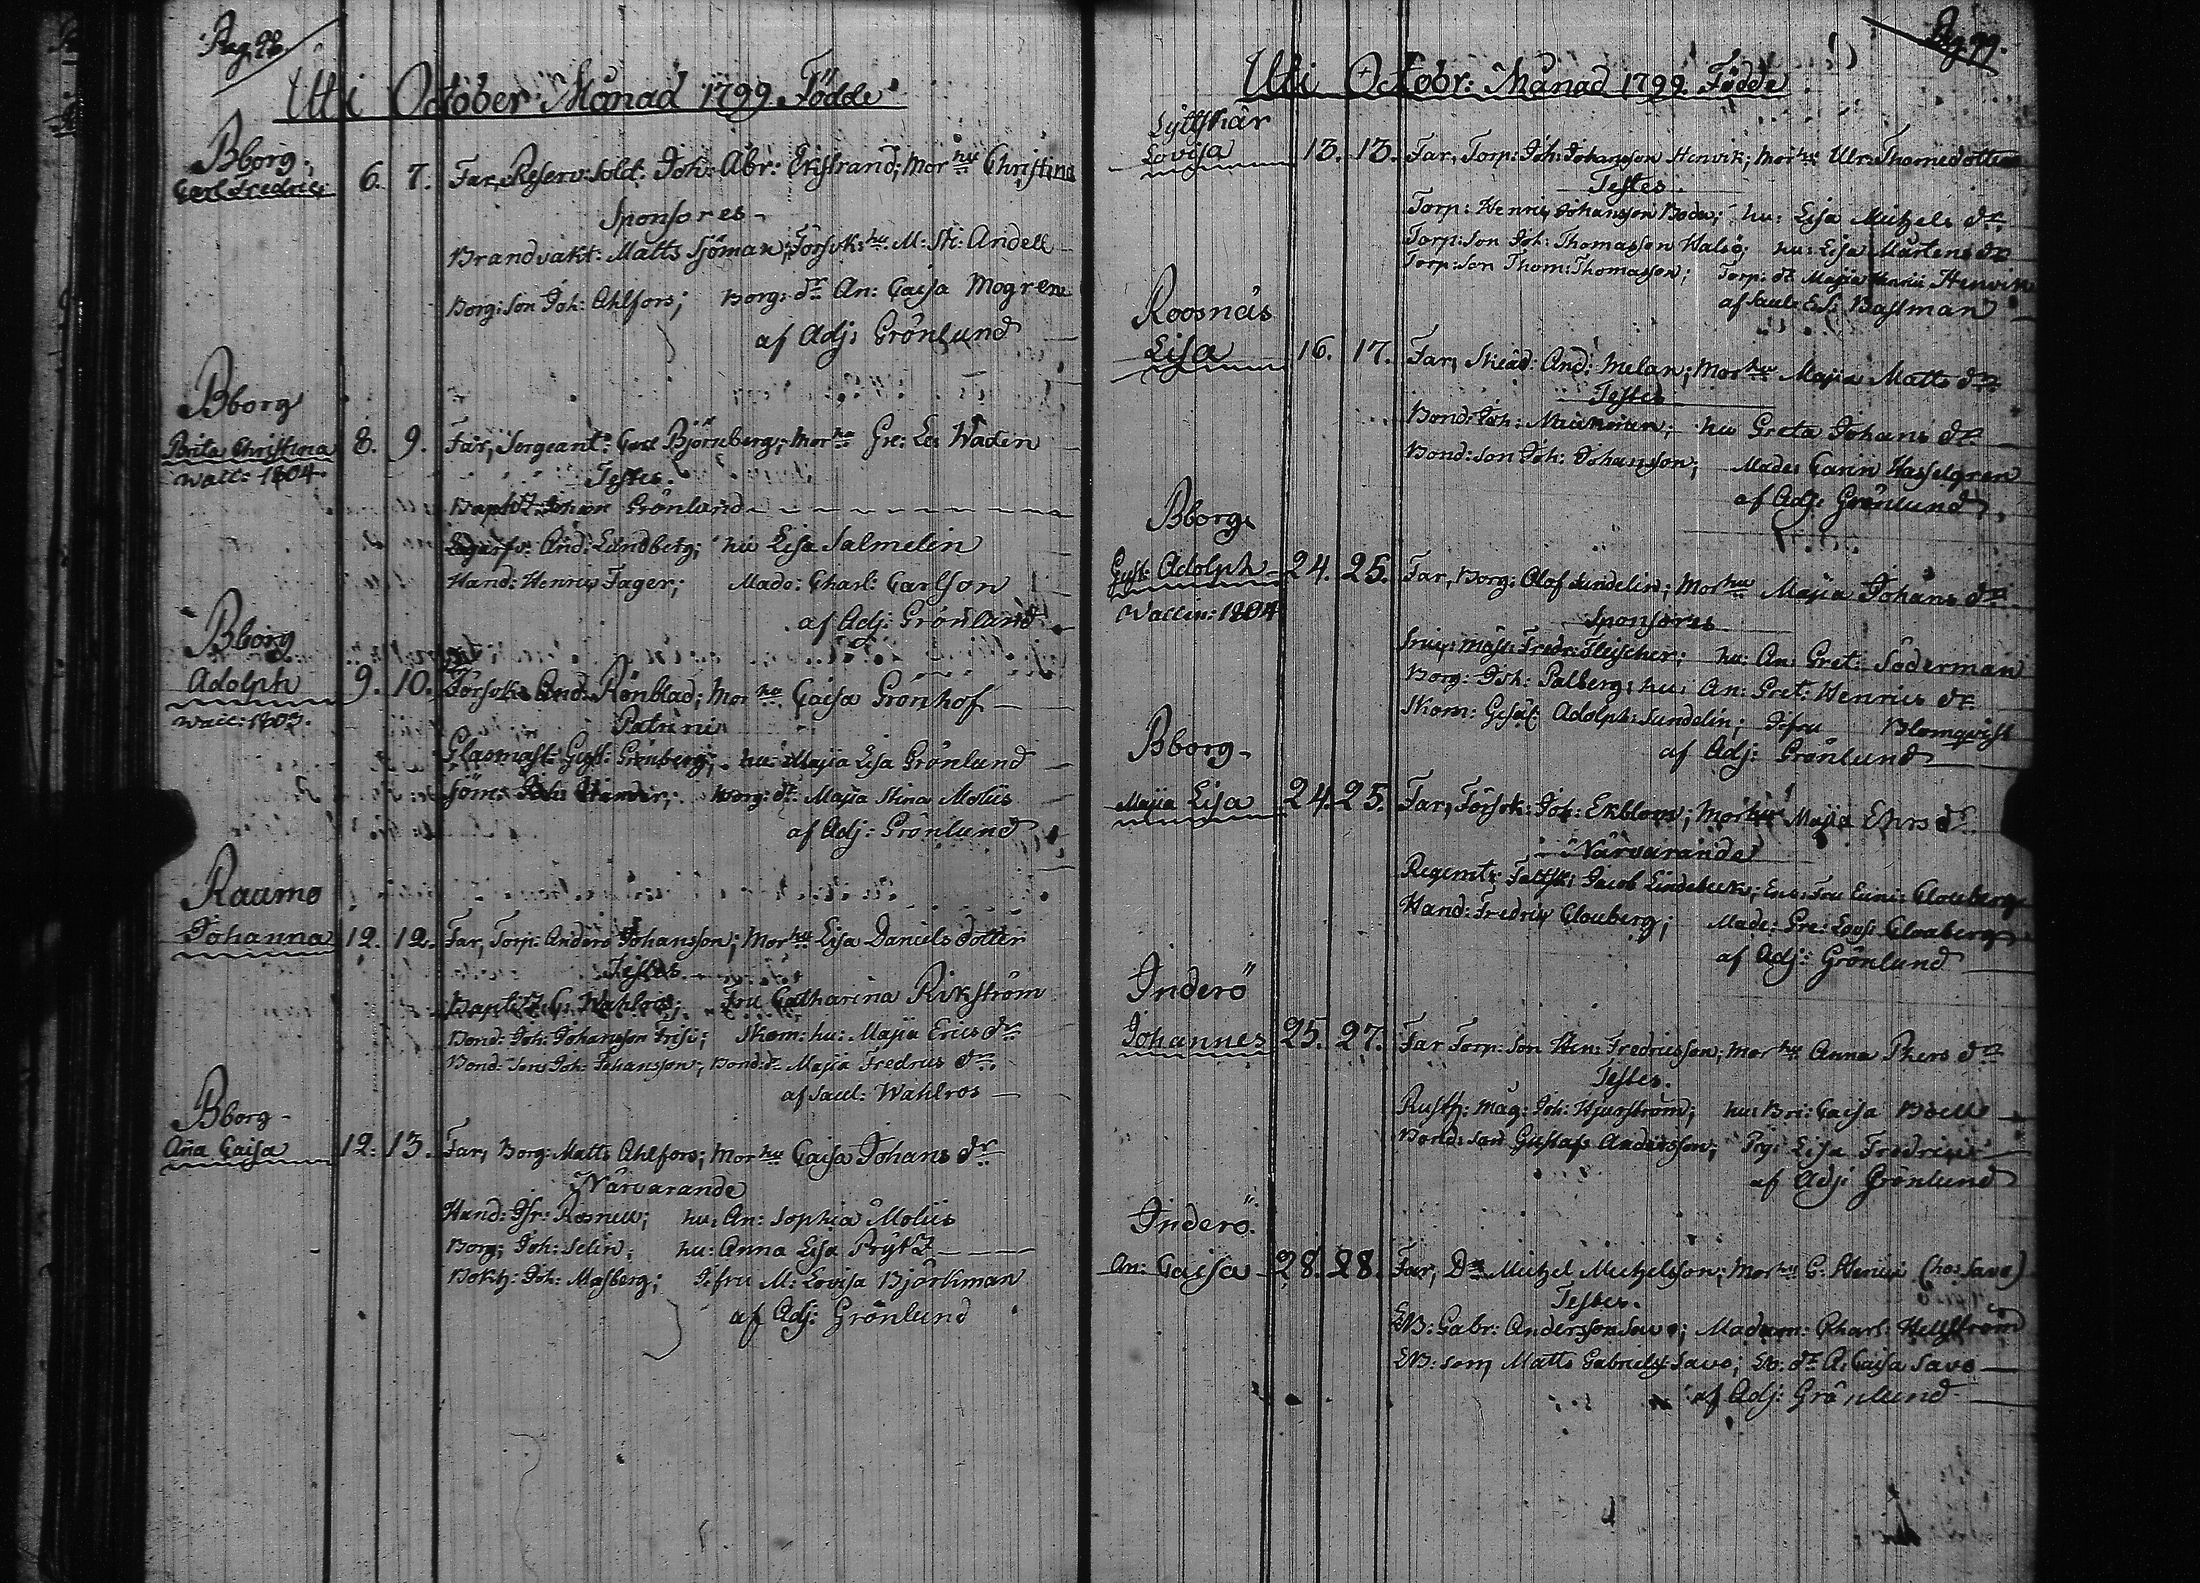 Pag. 98.
Uti October Månad 1799 Födde
Bborg.
Carl Fredric 6. 7. Far, Reserv: Sold: Joh: Abr: Ekstrand; Mor hu Christina
Sponsores
Brandvakt: Matts Sjöman; Försvk: hu: M: Sti: Andell
Borg: Son Joh: Ahlfors; Borg: dr An: Caisa Mogren
af Adj: Grönlund
Bborg
Brita Christina 8. 9. Far, Sergeant: Carl Björnberg; Mor hu Gre: Le: Wadén
Wacc: 1804
Testes.
Johan Grönlund
And: Lundberg; hu Lisa Salmelin
Hand: Henric Fager; Made: Charl: Carlson
af Adj: Grönlund
Bborg
Adolph 9. 10. Försvk: And: Rönblad; Mor hu Caisa Grönhof
Wacc: 1803.
Patrini
Glasmäst: Gust: Grönberg; hu: Maja Lisa Grönlund
Borg: dr Maja Stina Moliis
af Adj: Grönlund
Raumo
Johanna 12. 12. Far, Torp: Anders Johansson; Mor hu Lisa Daniels dotter
Testes.
C: Wahlroos; Fru Catharina Rikström
Bond: Joh: Johansson Frisi; Skom: hu: Maja Erics dr
Bond: Son: Joh: Johansson; Bond: dr Maja Fredrics dr
af Sacel: Wahlros
Bborg
Aña Caisa 12. 13. Far, Borg: Matts Ahlfors; Mor hu Caisa Johans dr
Närvarande
Hand: Isr: Rosnell; hu: An: Sophia Moliis
Borg: Joh: Selin; hu: Anna Lisa Prytz
Bokh: Joh: Masberg; J:fru M: Lovisa Björkman
af Adj: Grönlund
Pag 99.
Uti Octobr: Månad 1799. Födde
Lyttskär
Lovisa 13. 13. Far, Torp: Joh: Johansson Henvik; Mor hu Ulr: Thomedotter
Testes.
Torp: Henric Johansson Boda; hu: Lisa Michels dr
Torp: Son Joh: Thomasson Halsö; hu: Lisa Mårtens dr
Torp: Son Thom: Thomasson; Torp: dr Maja Henvik
af Sacel: Bastman
Roosnäs
Lisa 16. 17. Far, Skräd: And: Melan; Mor hu Maja Matts dr
Testes
Bond: Joh: hu Greta Johans dr
Bond: Son Joh: Johansson; Made: Carin Hasselgren
af Adj: Grönlund
Bborg
Gust: Adolph 24. 25. Far, Borg: Olof Sundelin; Mor hu Maja Johans dr
Waccin: 1804
Sponsores
Mäst: Fredr: Fleischer; hu: An: Gret: Söderman
Borg: Joh: Palberg; hu: An: Gret: Henrics dr
Skom: Gesäl: Adolph: Sundelin; J:fru Blomqvist
af Adj: Grönlund
Bborg
Maja Lisa 24. 25. Far, Försvk: Joh: Ekblom; Mor hu Maja Ehrs dr
Närvarande
Regemts: Fältsk: Jacob Lindebeck; Enk: Fru Euni: Clouberg
Hand: Fredric Clouberg; Made: Gre: Lovis: Clouberg
af Adj: Grönlund
Inderö
Johannes 25. 27. Far Torp: Son Hen: Fredricsson; Mor hu Anna Phers dr
Testes.
Rusth: Mag: Joh: Hjurström; hu: Bri: Caisa Boelle
Bond: son Gustaf Andersson; Pig: Lisa Fredrics
af Adj: Grönlund
Inderö.
An: Caisa 28. 28. Far, Dr Michel Michelsson; Mor hu C: Henric (hos Savo)
Testes.
EB: Gabr: Andersson Savo; Madam: Charl: Hellström
EB: son Matts Gabriels: Savo; EB: dr A: Caisa Savo
af Adj: Grönlund